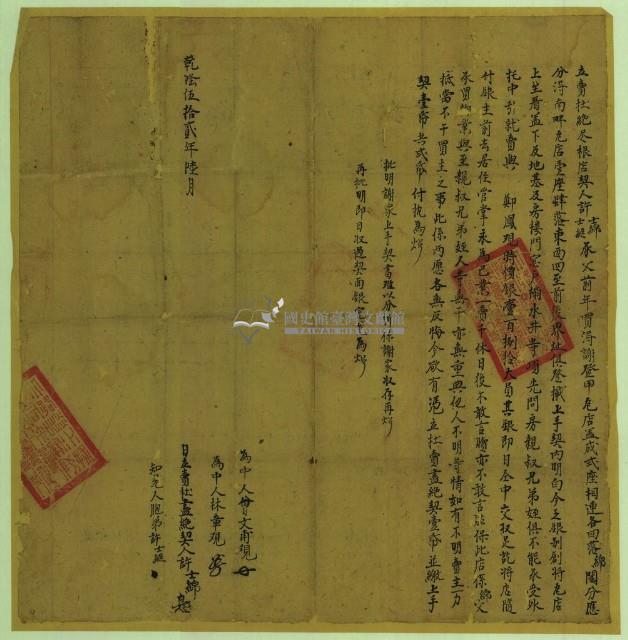 立賣杜絕尽根店契人許士綿士綎承父前年買得謝登甲瓦店盖成弍座相連各四落綿鬮分應
分淂南畔瓦店壹座肆落東西四至前後界址俱登載上手契內明白今乏銀別創將瓦店
上至青盖下及地基及房樓門窓戶扇水井等項先問房親叔兄弟姪俱不能承受外
托中引就賣與 鄭鳳現時價銀壹百捌拾大員其銀即日仝中交收足訖將店隨
付銀主前去居住管掌永為己業一賣千休日後不敢言贖亦不敢言找保此店係綿父
承買物業與至親叔兄弟姪人等無干亦無重典他人不明等情如有不明賣主一力
抵當不干買主之事此係両愿各無反悔今欲有憑立杜賣盡絕契壹帋並繳上手
契壹帋共弍帋付执為炤
批明謝家上手契書以分係謝家收存再炤
再批明即日收過契面銀為炤
乾隆伍拾弍年陸月
為中人曾文甫現
為中人林章現
日立賣杜盡絕契人許士綿
知見人胞弟許士綎
國史館臺灣文獻館
TAIWAN HISTORICA